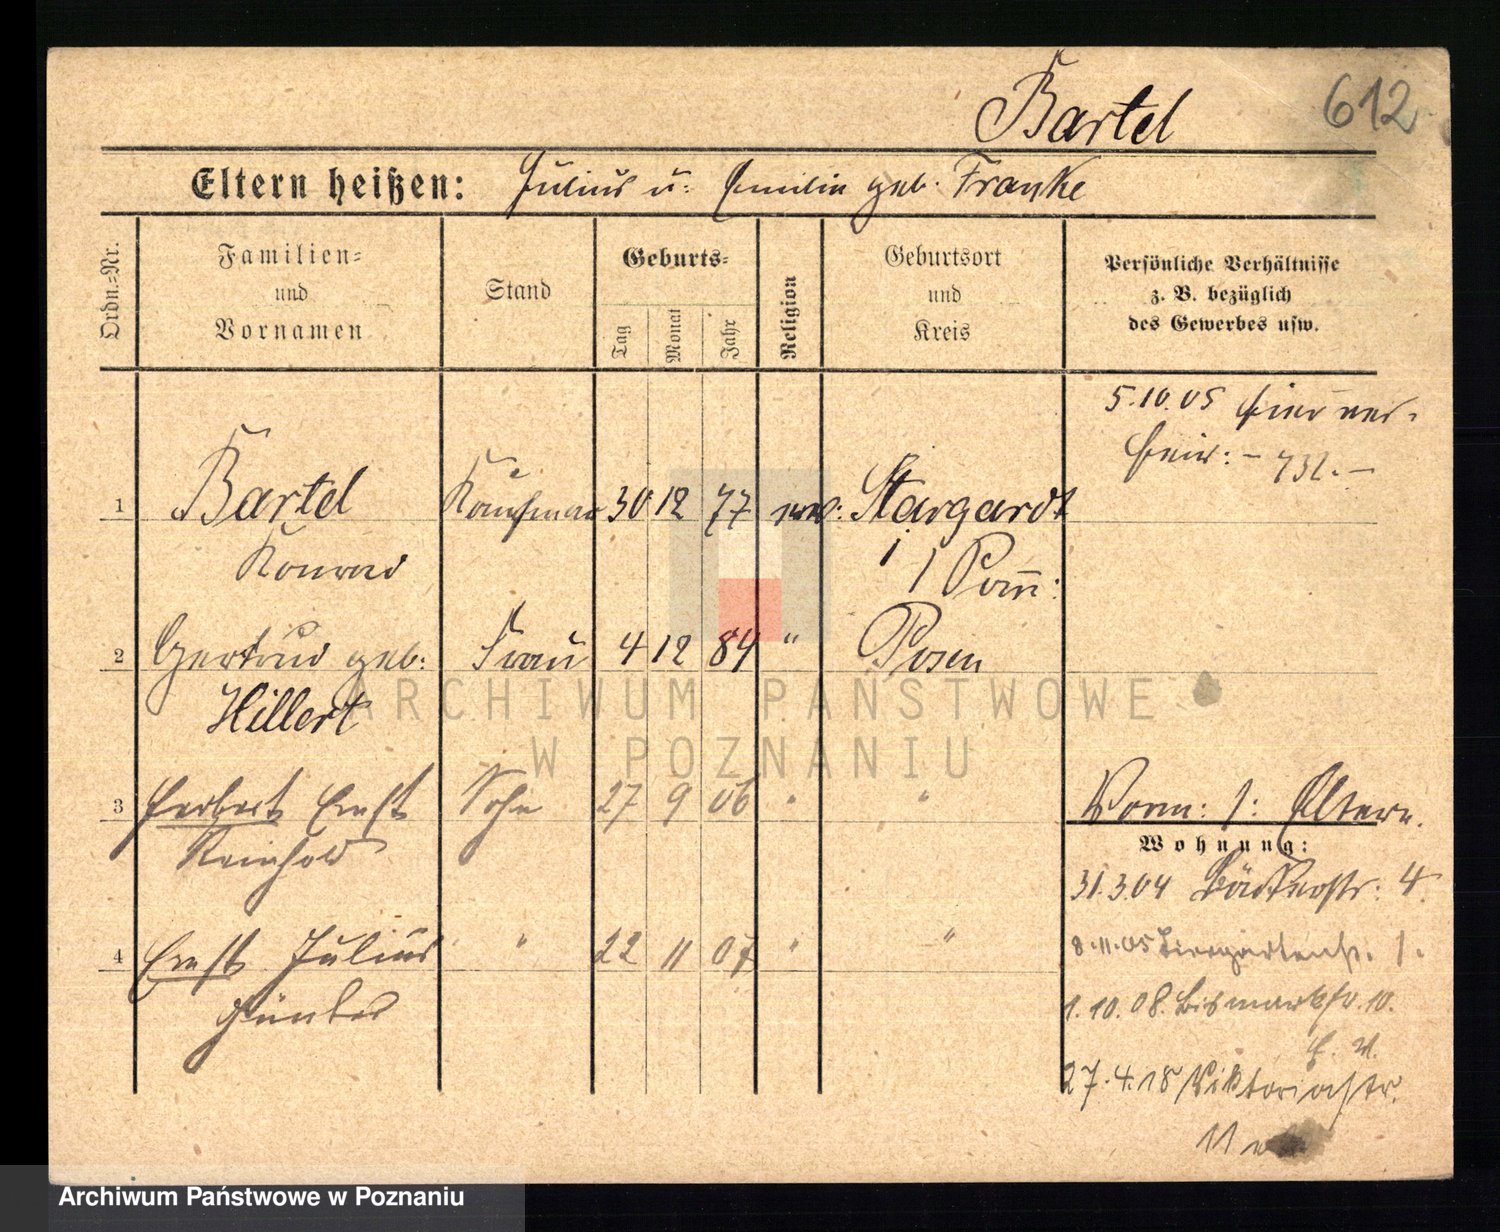 612
Bartel
Eltern heißen: Julius u. Emilie geb. Franke
Ordn.=Nr.
Familien=
und
Vornamen
Stand
Geburts=
Tag
Monat
Jahr
Religion
Geburtsort
und
Kreis
Persönliche Verhältnisse
z. B. bezüglich
des Gewerbes usw.
5.10.05 hier ver-
heir: - 732. -
1 Bartel Kaufmann 30 12 77 Stargardt
Konrad i/Pom:
2 Gertrud geb: Frau 4 12 84 " Posen
Hillert
3 Herbert Ernst Sohn 27 9 06 " "
Reinhold
4 Ernst Julius " 22 11 07 " "
Günter
Vorm: s: Eltern.
Wohnung:
31.3.04 Bäckerstr: 4.
8.11.05 Tiergartenstr. 1.
1.10.08. Bismarckstr. 10.
27.4.18 Viktoriastr.
11
ARCHIWUM PAŃSTWOWE
W POZNANIU
Archiwum Państwowe w Poznaniu